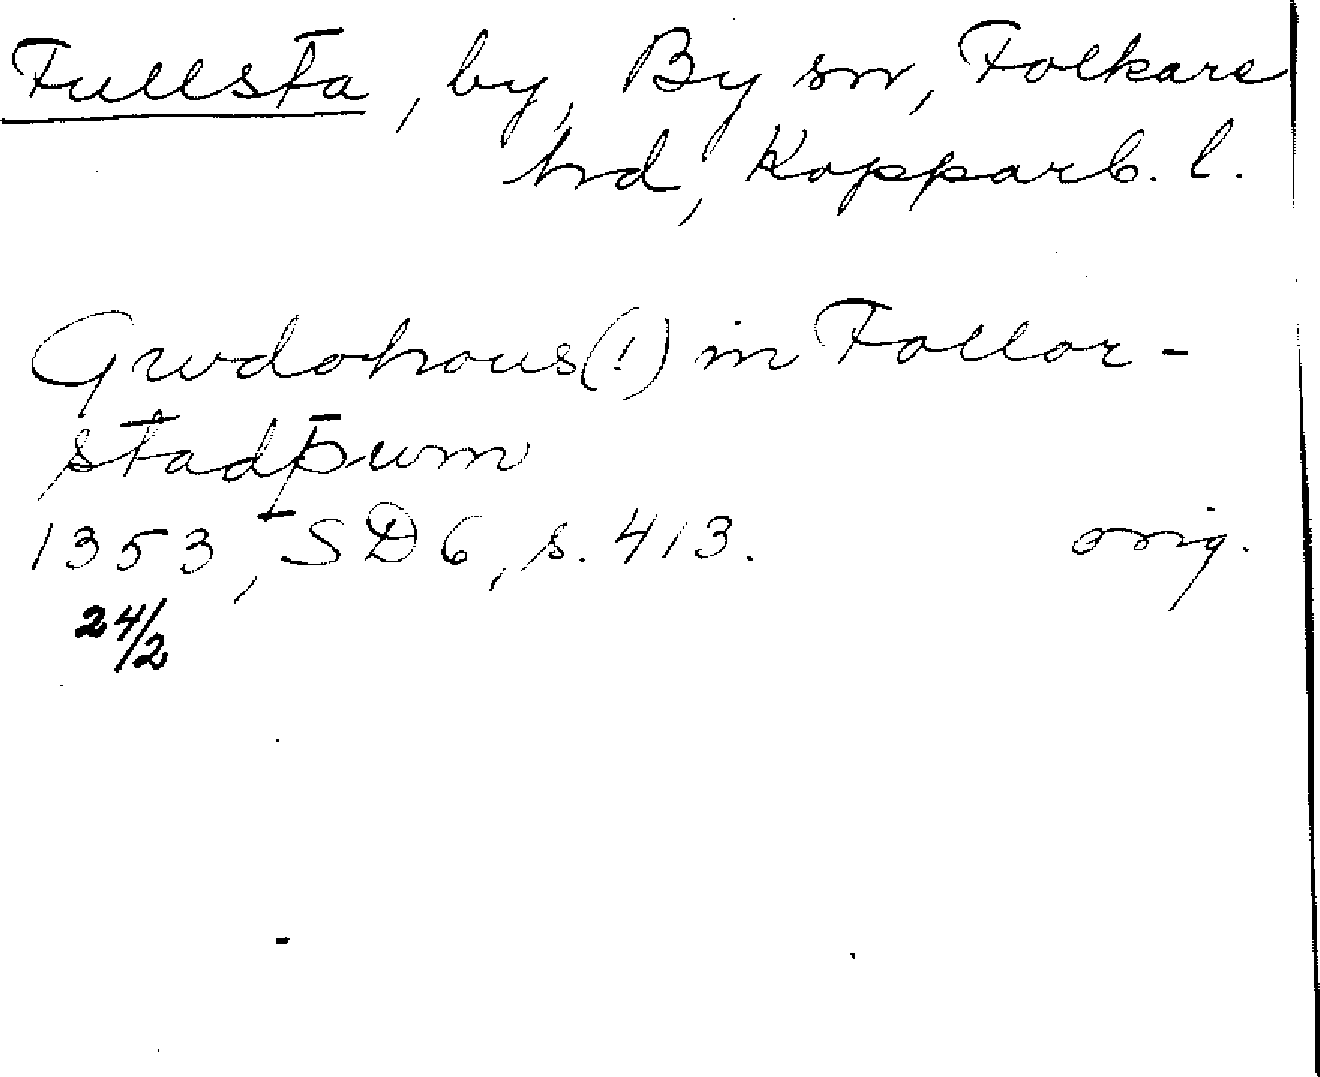 Fullsta, by, By sn, Folkare
hd, Kopparb. l.
Gwdohous(!) in Follor-
stadhum
1353, SD 6, s. 413. orig.
24/2